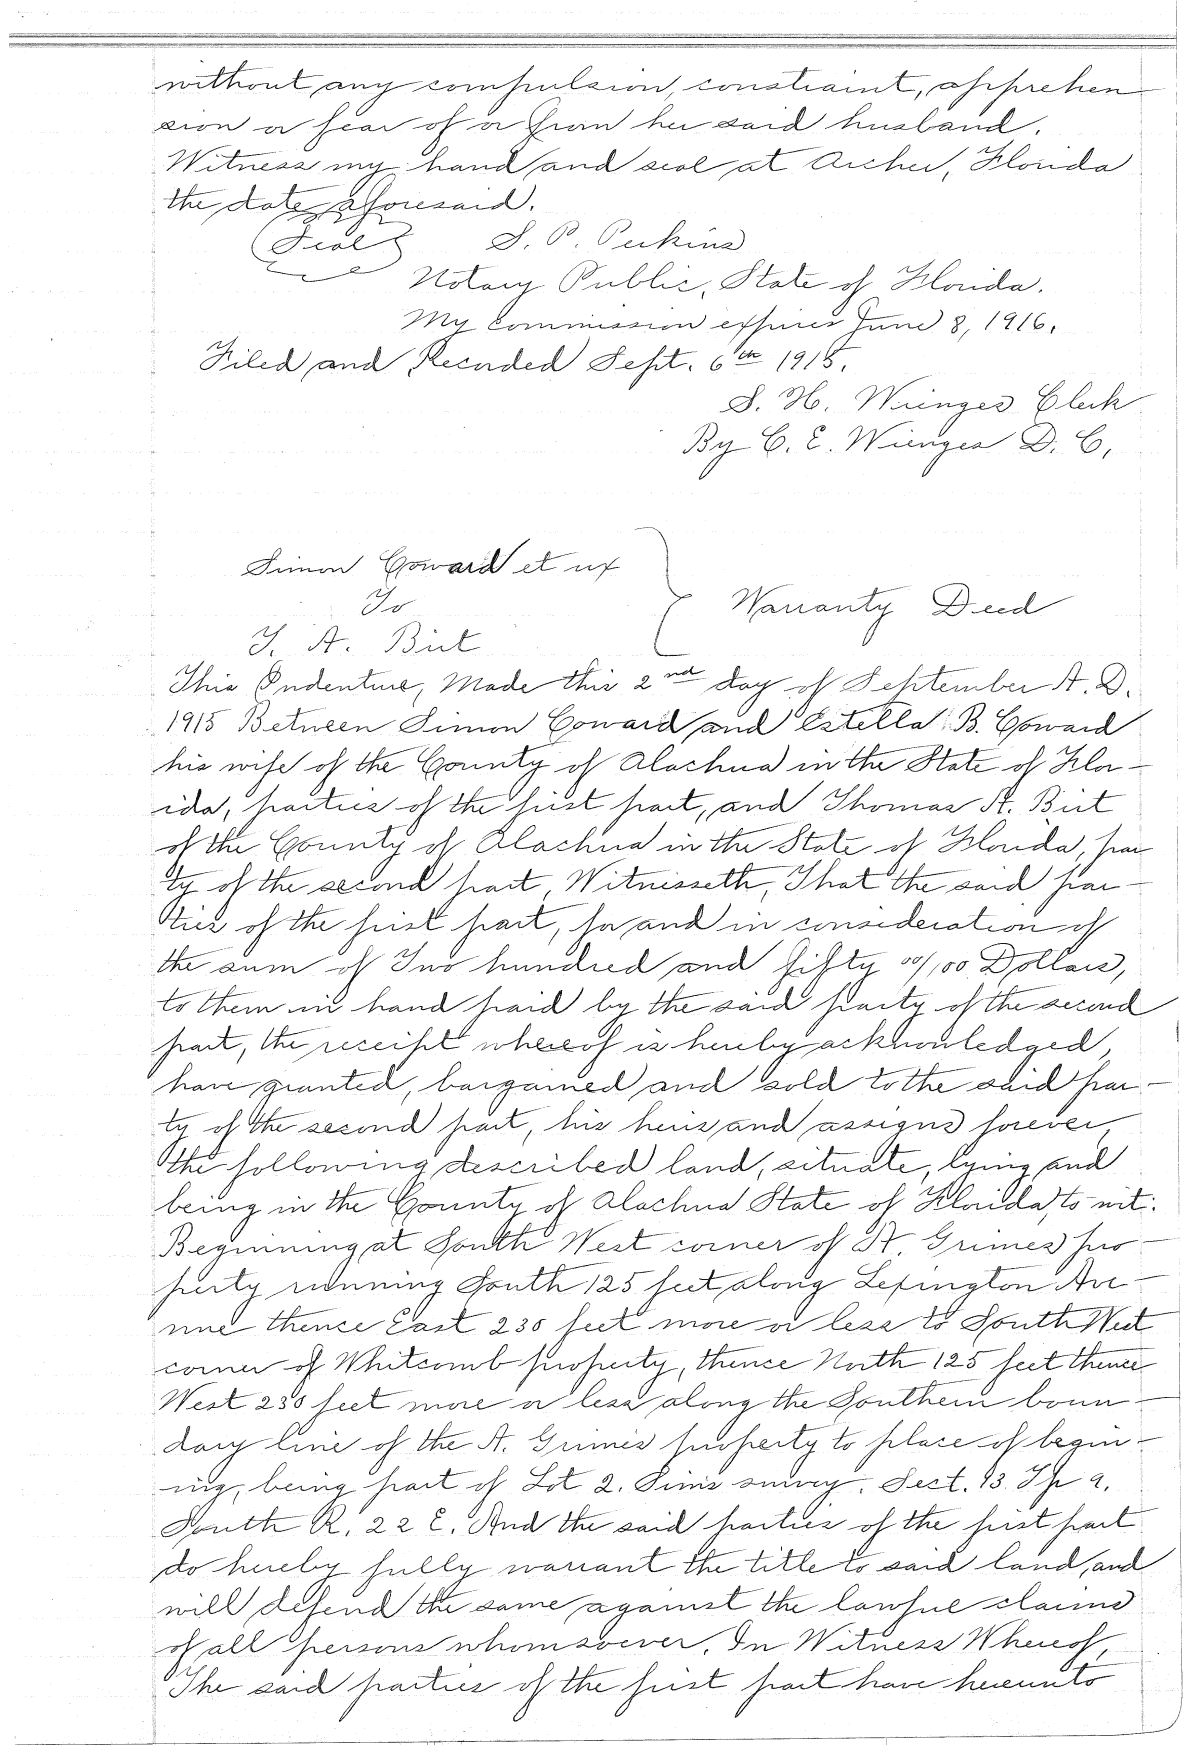 without any compulsion, constraint, apprehen
sion or fear of or from her said husband.
Witness my hand and seal at Archer, Florida
the date aforesaid.
(Seal) S. P. Perkins
Notary Public, State of Florida.
My commission expires June 8, 1916.
Filed and Recorded Sept. 6th 1915.
S. H. Wienges Clerk
By C. E. Wienges D. C.
Simon Coward et ux
To
T. A. Birt
Warranty Deed
This Indenture, Made this 2nd day of September A. D.
1915 Between Simon Coward and Estella B. Coward
his wife of the County of Alachua in the State of Flor-
ida, parties of the first part, and Thomas A. Birt
of the County of Alachua in the State of Florida, par
ty of the second part, Witnesseth, That the said par-
ties of the first part, for and in consideration of
the sum of Two hundred and fifty 00/100 Dollars,
to them in hand paid by the said party of the second
part, the receipt whereof is hereby acknowledged,
have granted, bargained and sold to the said par-
ty of the second part, his heirs and assigns forever,
the following described land, situate, lying and
being in the County of Alachua State of Florida, to wit:
Beginning at South West corner of A. Grimes pro-
perty running South 125 feet along Lexington Ave-
nue thence East 230 feet more or less to South West
corner of Whitcomb property, thence North 125 feet thence
West 230 feet more or less along the Southern boun-
dary line of the A. Grimes property to place of begin-
ing, being part of Lot 2. Sims survey. Sect. 13 Tp 9.
South R. 22 E. And the said parties of the first part
do hereby fully warrant the title to said land, and
will defend the same against the lawful claims
of all persons whomsoever. In Witness Whereof,
The said parties of the first part have hereunto